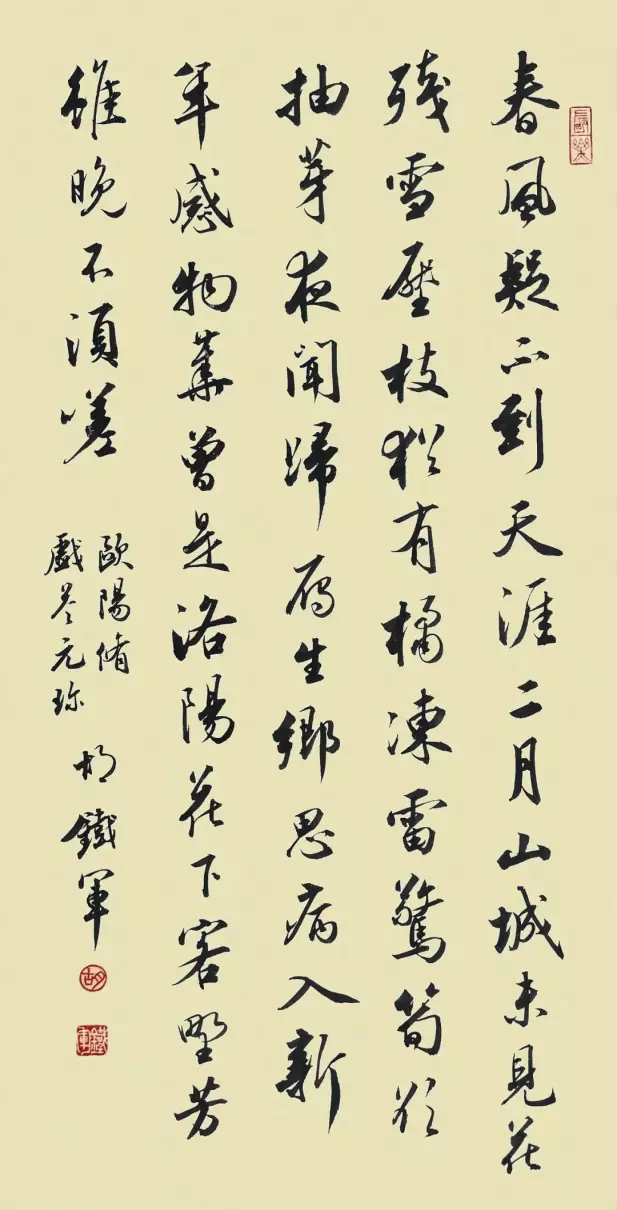 春風疑不到天涯二月山城未見花
殘雪壓枝猶有橘凍雷驚筍欲
抽芽夜聞歸雁生鄉思病入新
年感物華曾是洛陽花下客野芳
雖晚不須嗟
歐陽脩
戲答元珍
胡鐵軍
長樂
胡
鐵軍